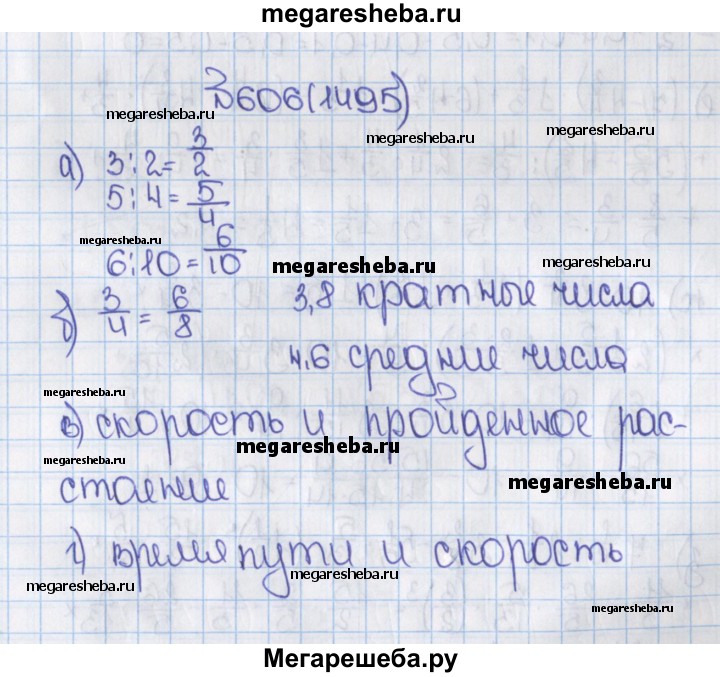 megaresheba.ru
№606(1495)
megaresheba.ru megaresheba.ru megaresheba.ru
а) 3:2=3/2
5:4=5/4
megaresheba.ru megaresheba.ru
6:10=6/10
megaresheba.ru megaresheba.ru
б) 3/4=6/8 3,8 кратные числа
4.6 средние числа
megaresheba.ru
в) скорость и пройденное рас-
megaresheba.ru megaresheba.ru
стояние
megaresheba.ru
г) время пути и скорость
megaresheba.ru megaresheba.ru
megaresheba.ru
Мегарешеба.ру